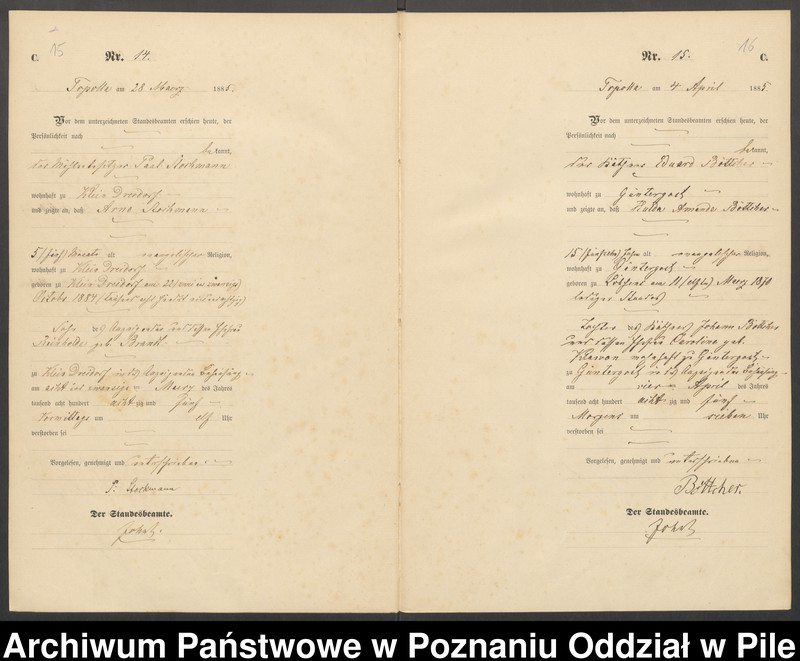 15
C.
Nr. 14.
Topolla am 28. Maerz 1885.
Vor dem unterzeichneten Standesbeamten erschien heute, der
Persönlichkeit nach
bekannt,
der Paul Stockmann
wohnhaft zu Klein Dreidorf
und zeigte an, daß Arno Stockmann
5 (fünf) Monate alt evangelischer Religion,
wohnhaft zu Klein Dreidorf
geboren zu Klein Dreidorf am 22
October 1884
Sohn des Anzeigenden und dessen Ehefrau
Reinholde geb Brandt
zu Klein Dreidorf in des Anzeigenden Behausung
am acht und zwanzigsten Maerz des Jahres
tausend acht hundert achtzig und fünf
Vormittags um elf Uhr
verstorben sei
Vorgelesen, genehmigt und unterschrieben
P. Stockmann
Der Standesbeamte.
16
C.
Nr. 15.
am 4 April 1885
Vor dem unterzeichneten Standesbeamten erschien heute, der
Persönlichkeit nach
bekannt,
der Käthner Eduard Böttcher
wohnhaft zu Güntergost
und zeigte an, daß Hulda Amande Böttcher
15 (fünfzehn) Jahre alt evangelischer Religion,
wohnhaft zu Güntergost
geboren zu am 11 (elften) Maerz 1870
ledigen Standes
Tochter des Käthners Johann Böttcher
und dessen Ehefrau Caroline geb.
wohnhaft zu Güntergost
zu Güntergost in des Anzeigenden Behausung
am vier April des Jahres
tausend acht hundert achtzig und fünf
Morgens um sieben Uhr
verstorben sei
Vorgelesen, genehmigt und unterschrieben
Böttcher.
Der Standesbeamte.
Archiwum Państwowe w Poznaniu Oddział w Pile